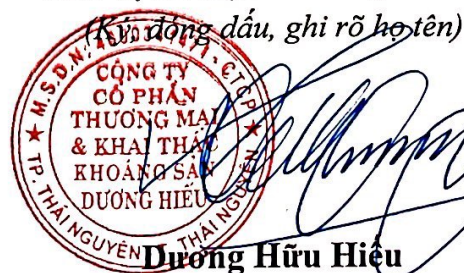 (Ký, đóng dấu, ghi rõ họ tên)
CÔNG TY
CỔ PHẦN
THƯƠNG MẠI
& KHAI THÁC
KHOÁNG SẢN
DƯƠNG HIẾU
TP. THÁI NGUYÊN - T. THÁI NGUYÊN
Dương Hữu Hiếu